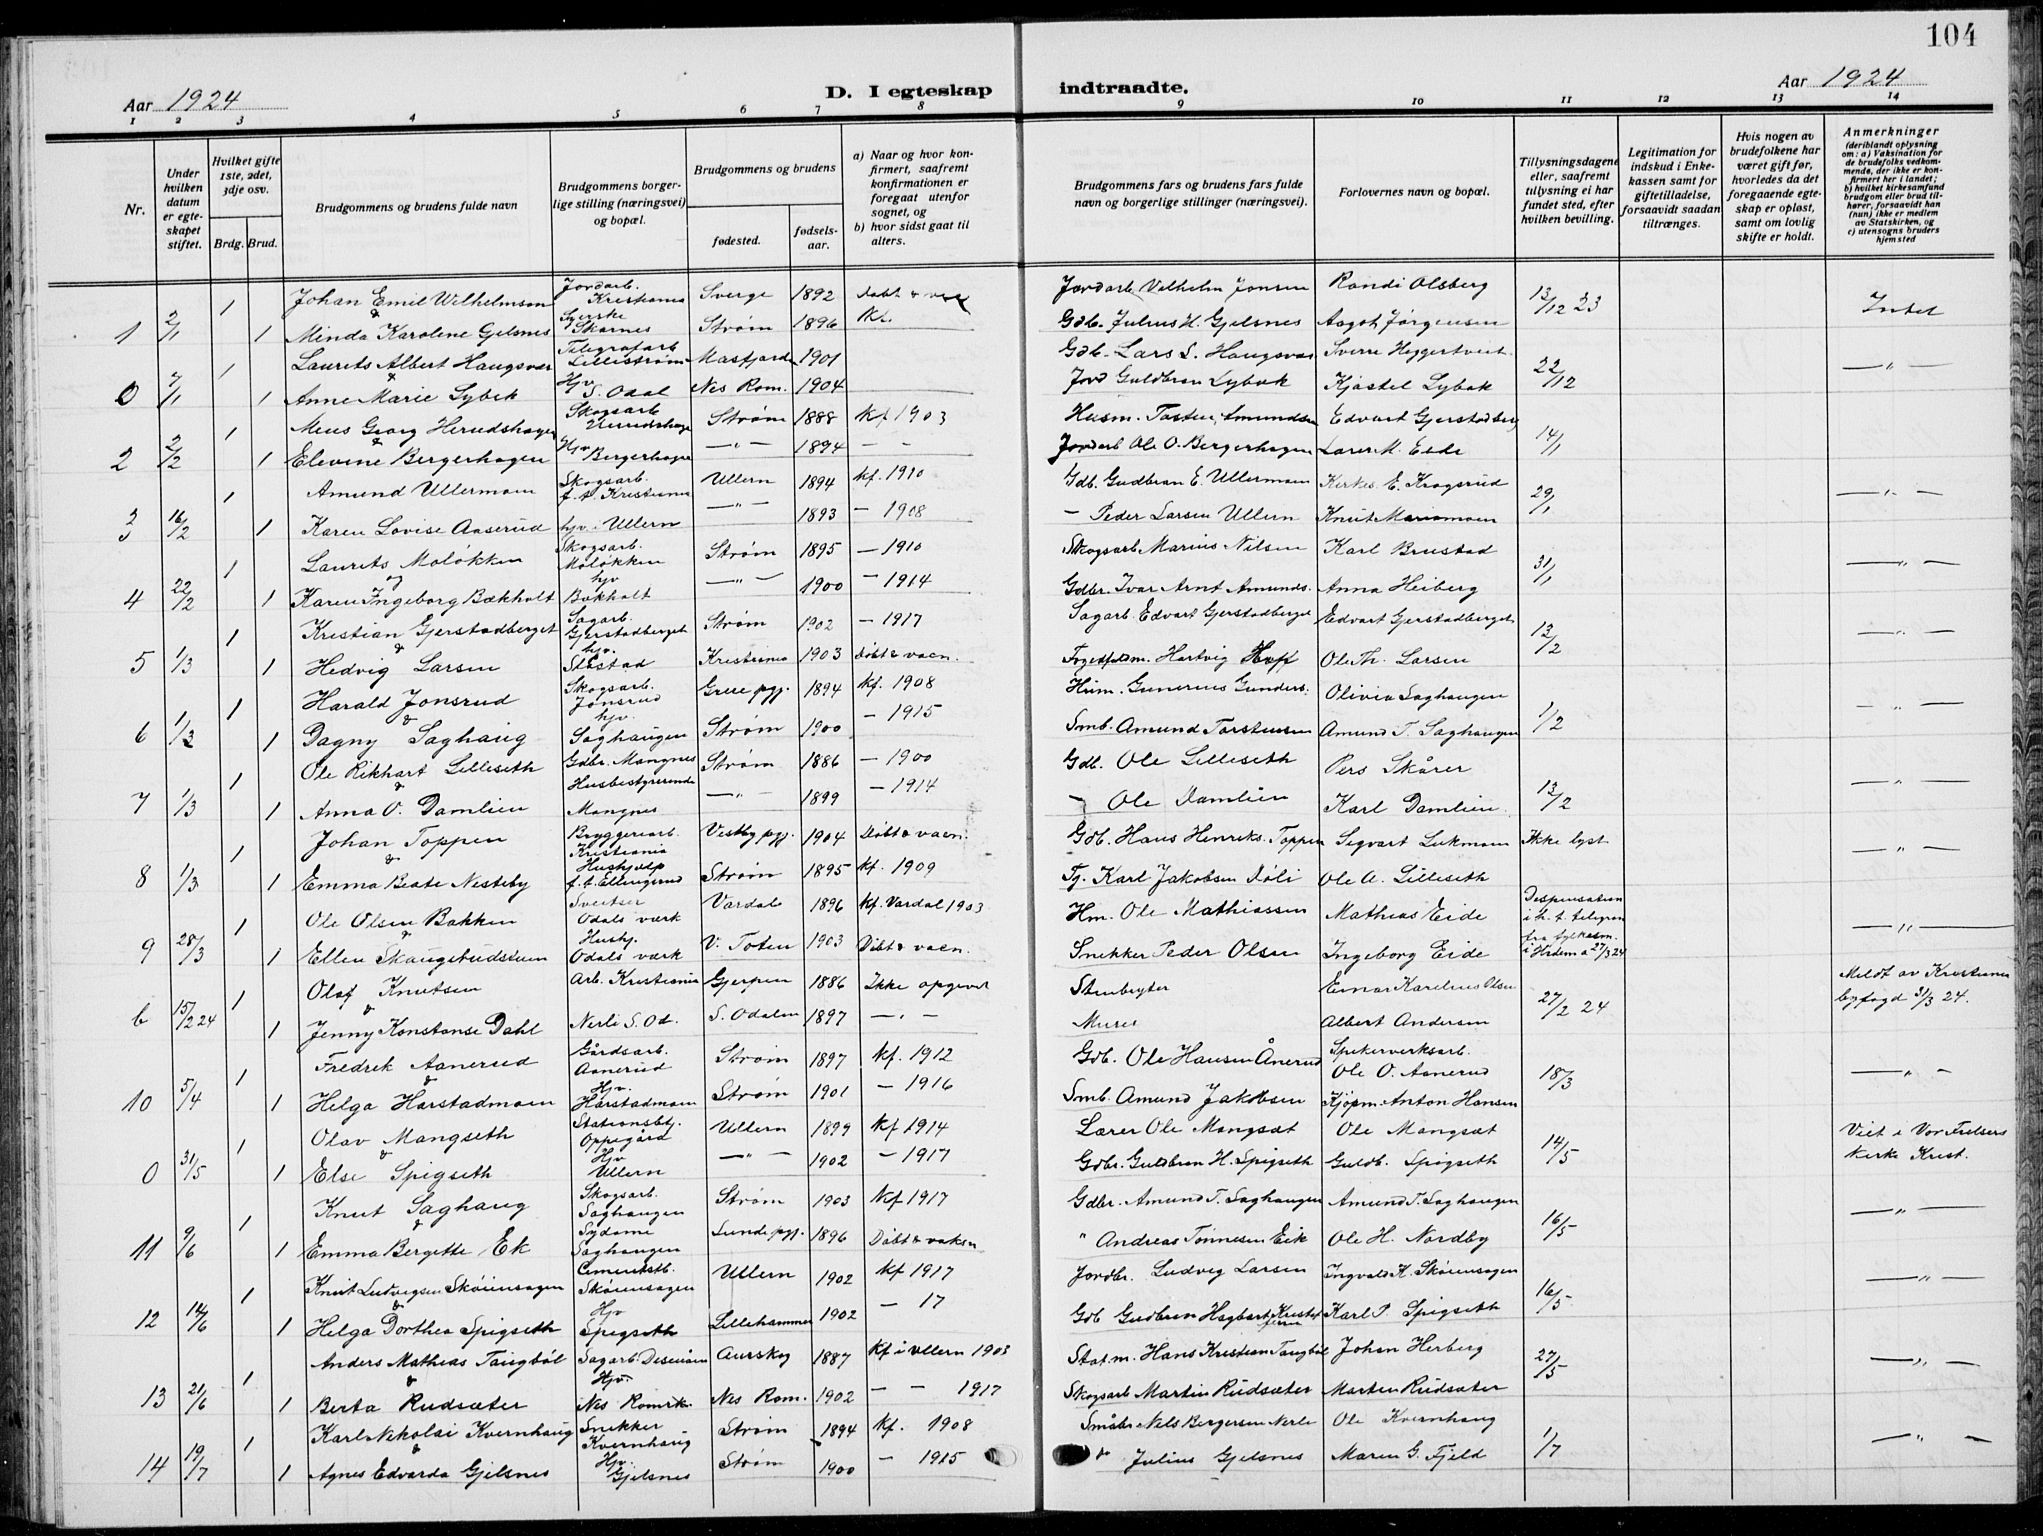 104
Aar 1924
D. I egteskap indtraadte.
Aar 1924
1 2 3 4 5 6 7 8 9 10 11 12 13 14
Nr.
Under hvilken datum er egteskapet stiftet.
Hvilket gifte 1ste, 2det, 3dje osv.
Brdg. Brud.
Brudgommens og brudens fulde navn
Brudgommens borgerlige stilling (næringsvei) og bopæl.
Brudgommens og brudens
fødested.
fødselsaar.
a) Naar og hvor konfirmert, saafremt konfirmationen er foregaat utenfor sognet, og
b) hvor sidst gaat til alters.
Brudgommens fars og brudens fars fulde navn og borgerlige stillinger (næringsvei).
Forlovernes navn og bopæl.
Tillysningsdagene eller, saafremt tillysning ei har fundet sted, efter hvilken bevilling.
Legitimation for indskud i Enkekassen samt for giftetilladelse, forsaavidt saadan tiltrænges.
Hvis nogen av brudefolkene har været gift før, hvorledes da det foregaaende egteskap er opløst, samt om lovlig skifte er holdt.
Anmerkninger (deriblandt oplysning om: a) Vaksination for de brudefolks vedkommende, der ikke er konfirmert her i landet; b) hvilket kirkesamfund brudgom eller brud tilhører, forsaavidt han (hun) ikke er medlem av Statskirken, og c) utensogns bruders hjemsted
1 Johan Emil Wilhelmsen Jordarb. Kristiania Sverge 1892 Døbt & Jordarb. Velhelm Jonsen Randi Olsberg 13/12 23 Intet
1 2/1 & 1 Minda Karoline Gjelsnes Syerske Skarnes Strøm 1896 Kf. Gdb. Julius H. Gjelsnes Aagot Jørgensen
1 Laurits Albert Haugsvær Telegrafarb Lillestrøm Masfjorden 1901 Gdb. Lars L. Haugsvær Sverre Heggertveit 22/12 — " —
0 7/1 & 1 Anne Marie Lybek Hjv. S. Odal Nes Rom. 1904 Jord Guldbran Lybæk Kjøstel Lybæk
1 Meus Georg Herudshagen Skogsarb Herudshage Strøm 1888 Kf 1903 Husm. Tosten Amundsen Edvart Gjerstadberg 14/1
2 2/2 & 1 Elevine Bergerhagen Hjv Bergerhagen — " — 1894 — - Jordarb Ole O. Bergerhagen Lærer M. Eide
1 Amund Ullermoen Skogsarb. f. t. Kristiania Ullern 1894 Kf. 1910 Gdb. Gudbran E. Ullermoen Kirkes. E. Krogsrud 29/1 — " —
3 16/2 1 Karen Lovise Aaserud hjv. Ullern — " — 1893 — 1908 — Peder Larsen Ullern Knut
1 Laurits Moløkken Skogsarb. Moløkken Strøm 1895 — 1910 Skogsarb Marius Nilsen Karl Brustad 31/1 — " —
4 22/2 og 1 Karen Ingeborg Bækholt hjv Bækholt — " — 1900 — 1914 Gdbr. Ivar Arnt Amunds. Anna Heiberg
1 Kristian Gjerstadberget Sagarb. Gjerstadberget Strøm 1902 — 1917 Sagarb. Edvart Gjerstadberget Edvart Gjerstadberget 13/2 — " —
5 1/3 & 1 Hedvig Larsen hjv. Kristiania 1903 Døbt & vacn. Hartvig Hoff Ole Th. Larsen
1 Harald Jonsrud Skogsarb. Jonsrud Grue pgj. 1894 Kf. 1908 Hum. Gunerius Gunders. Olivia Saghaugen 1/2 — " —
6 1/3 & 1 Dagny Saghaug hjv. Saghaugen Strøm 1900 — 1915 Smb. Amund Torstensen Amund T. Saghaugen
1 Ole Rikhart Lilleseth Gdbr. Mangnes Strøm 1886 — 1900 Gdb. Ole Lilleseth Pers Skårer 13/2 — " —
7 1/3 & 1 Anna O. Damlien Husbestyrerinde Mangnes — " — 1899 — 1914 — Ole Damlien Karl Damlien
1 Johan Toppen Bryggeriarb. Kristiania Vestby pgj. 1904 Døbt & vacn. Gdb. Hans Henriks. Toppen Segvart Lukmoen Ikke lyst — " —
8 1/3 & 1 Emma Beate Nesteby Hushjelp f. t. Ellingsrud Strøm 1895 Kf. 1909 Karl Jakobsen Døli Ole A. Lilleseth
1 Ole Olsen Bakken Sveitser Odals værk Vardal 1896 Kf. Vardal 1903 Hm. Ole Mathiassen Mathias Eide Despensation i h. t. telegram fra fylkesm. i Hedem. a 27/3 24 — " —
9 28/3 & 1 Ellen Skaugstudstuen Hushj. Odals værk V. Toten 1903 Døbt & vacn. Snekker Peder Olsen Ingeborg Eide
1 Olaf Knutsen Arb. Kristiania Gjerpen 1886 Ikke opgivet Stenbryter Einar Karelius Olsen 27/2 24 Meldt av Kristiania byfogd 31/3 24.
6 15/2 24 & 1 Jenny Konstanse Dahl Nerli S. Od. S. Odalen 1897 — " — Murer Albert Andersen
1 Fredrik Aanerud Gårdsarb. Aanerud Strøm 1897 Kf. 1912 Gdb. Ole Hansen Ånerud Spikerverksarb. Ole O. Aanerud 18/3 — " —
10 5/4 & 1 Helga Harstadmoen Hjv. Harstadmoen Strøm 1901 — 1916 Smb. Amund Jakobsen Kjøpm. Anton Hansen
1 Olav Mangseth Stationsbtj. Oppegård Ullern 1899 Kf 1914 Lærer Ole Mangsæt Ole Mangsæt 14/5 Viet i Vor Frelsers Kirke Krist.
0 31/5 & 1 Else Spigseth Hjv Ullern — " — 1902 — 1917 Gdbr. Guldbran H. Spigseth Guldb. Spigseth
1 Knut Saghaug Skogsarb. Saghaugen Strøm 1903 Kf 1917 Gdbr. Amund T. Saghaugen Amund T. Saghaugen 16/5 — " —
11 9/6 & 1 Emma Bergette Ek Sydame Saghaugen Lunde pgj. 1896 Døbt & vaksn " Andreas Tønnesen Eik Ole H. Nordby
1 Knut Ludvigsen Skøienhagen Cementstb. Skøienhagen Ullern 1902 Kf 1917 Jordbr. Ludvig Larsen Ingvald K. Skøienhagen 16/5 — " —
12 14/6 & 1 Helga Dorthea Spigseth Hjv Spigseth Lillehammer 1902 — 17 Gdb Gudbran Hagbart Karl P. Spigseth
1 Anders Mathias Taugbøl Sagarb. Disenåen Aurskog 1887 Kf i Ullern 1903 Stat.m. Hans Kristian Taugbøl Johan Herberg 27/5 — " —
13 21/6 & 1 Berta Rudsæter Hjv. Nes Romrk. Nes Rom. 1902 — — 1917 Skogsarb Martin Rudsæter Martin Rudsæter
1 Karl Nikolai Kvernhaug Snekker Kvernhaug Strøm 1894 Kf. 1908 Småbr Nels Bergersen Nerli Ole Kvernhaug 1/7 — " —
14 19/7 & 1 Agnes Edvarda Gjelsnes Hjv. Gjelsnes Strøm 1900 — 1915 Julius Gjelsnes Maren G. Fjeld